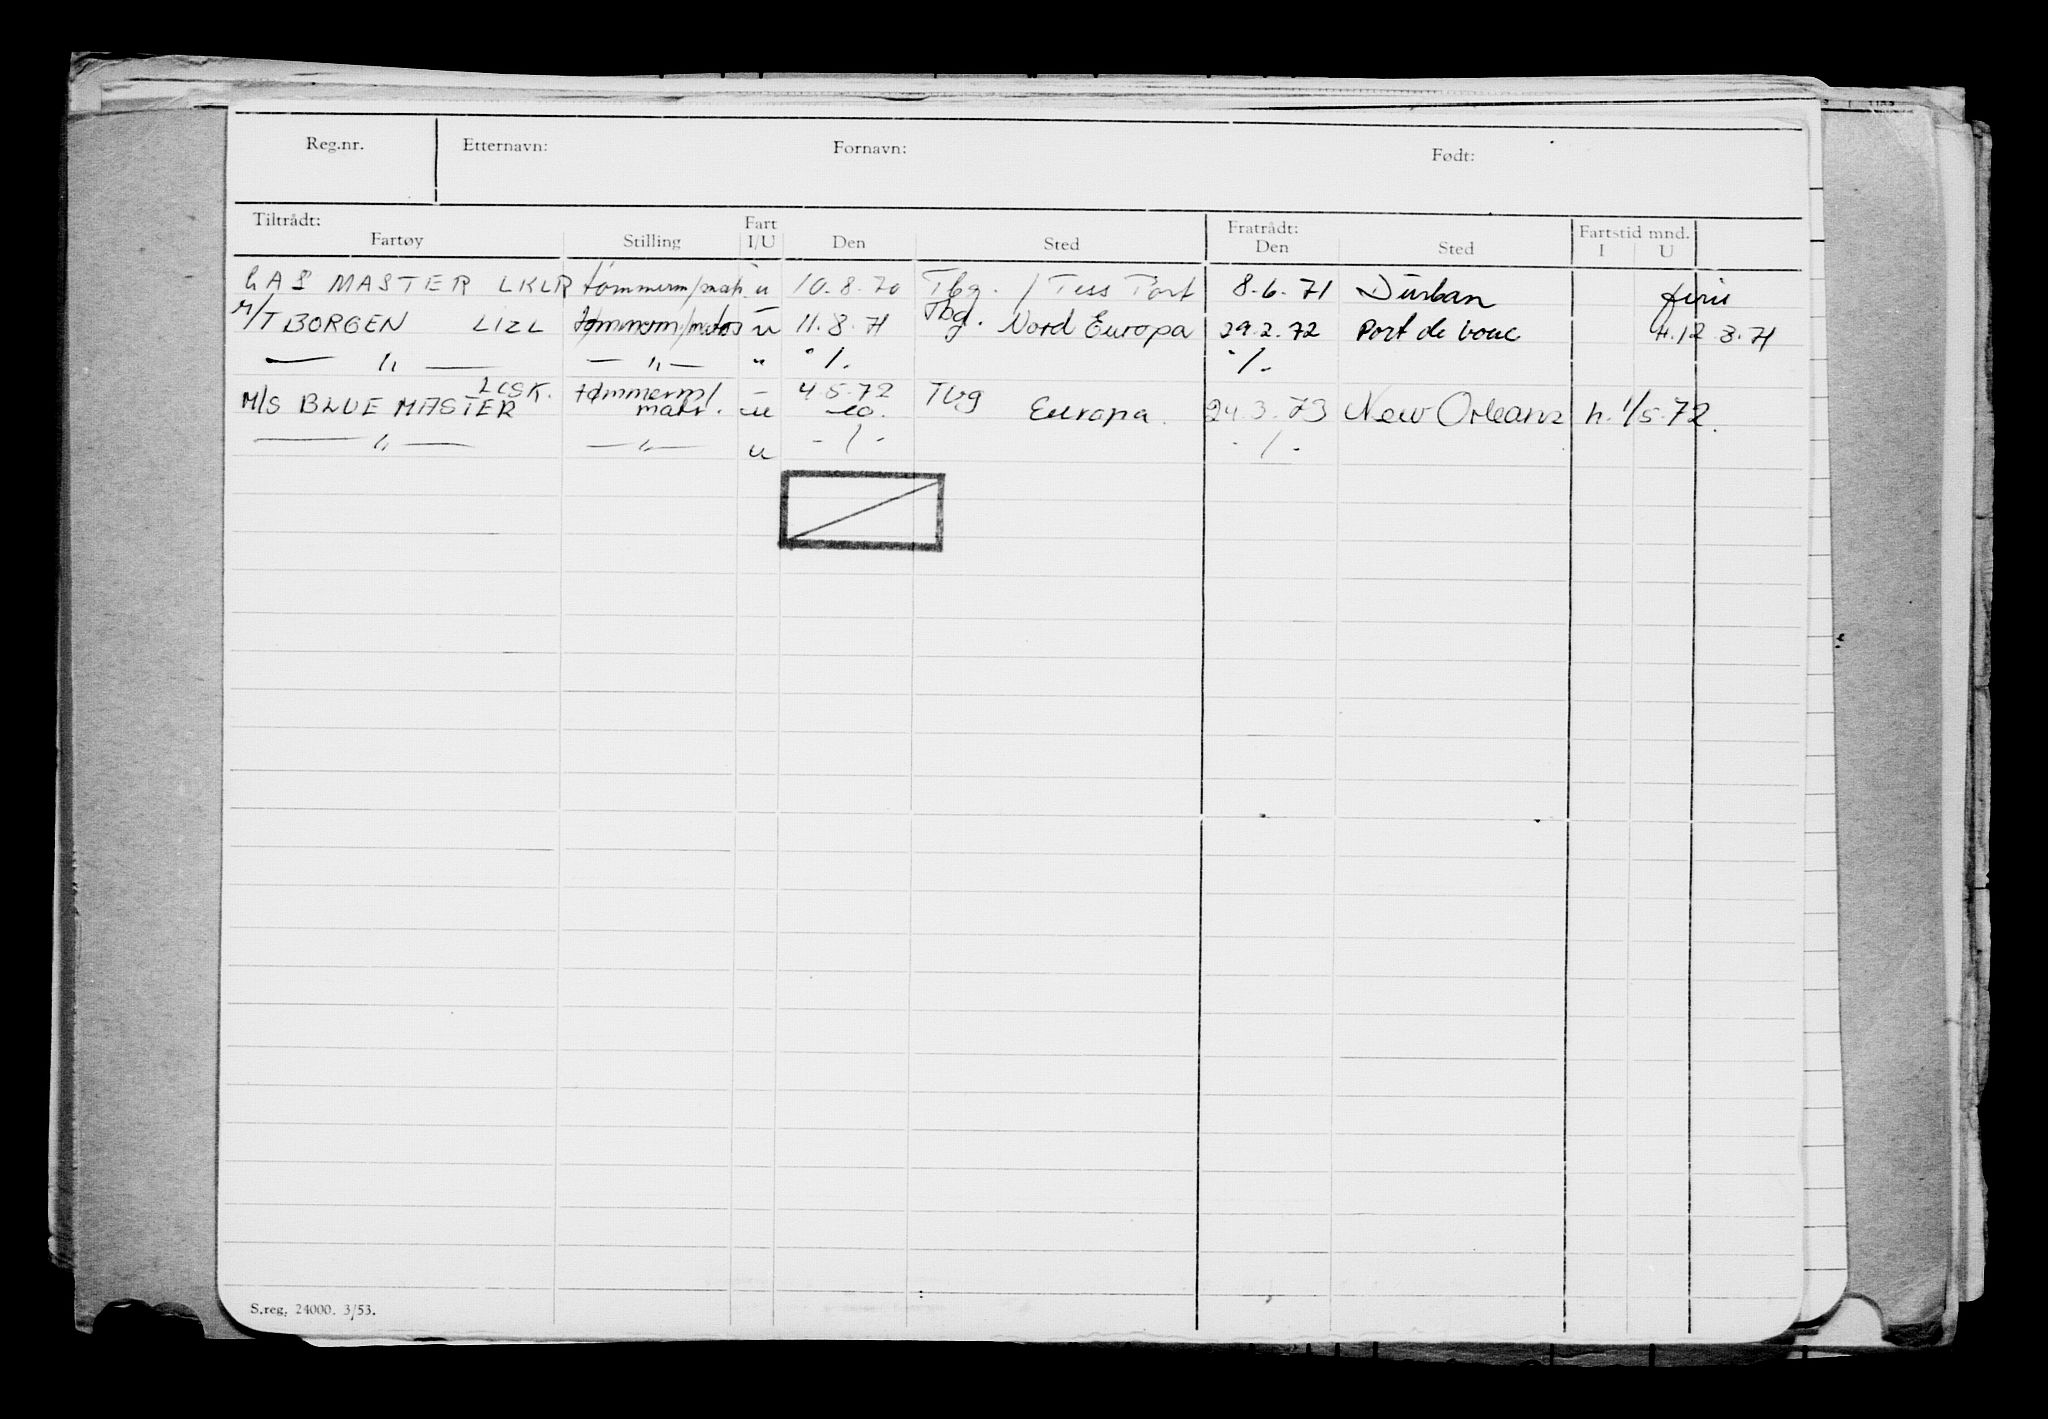 Reg.nr. Etternavn: Fornavn: Født:
Tiltrådt: Fratrådt:
Fartøy Stilling Fart I/U Den Sted Den Sted Fartstid mnd. I U
GAS MASTER LKLR tømmerm/matr. u 10.8.70 Tbg. / Tess Port 8.6.71 Durban ferie
M/T BORGEN LIZL tømmerm/matros u 11.8.71 Tbg. Nord Europa 29.2.72 Port de bouc 4.12 3.71
— " — — " — " " /. " /.
M/S BLUE MASTER LCSK. tømmerm/ matr. u 4.5.72 Tbg Europa. 24.3.73 New Orleans h. 1/5.72.
— " — — " — u - / - - / -
S.reg. 24000. 3/53.